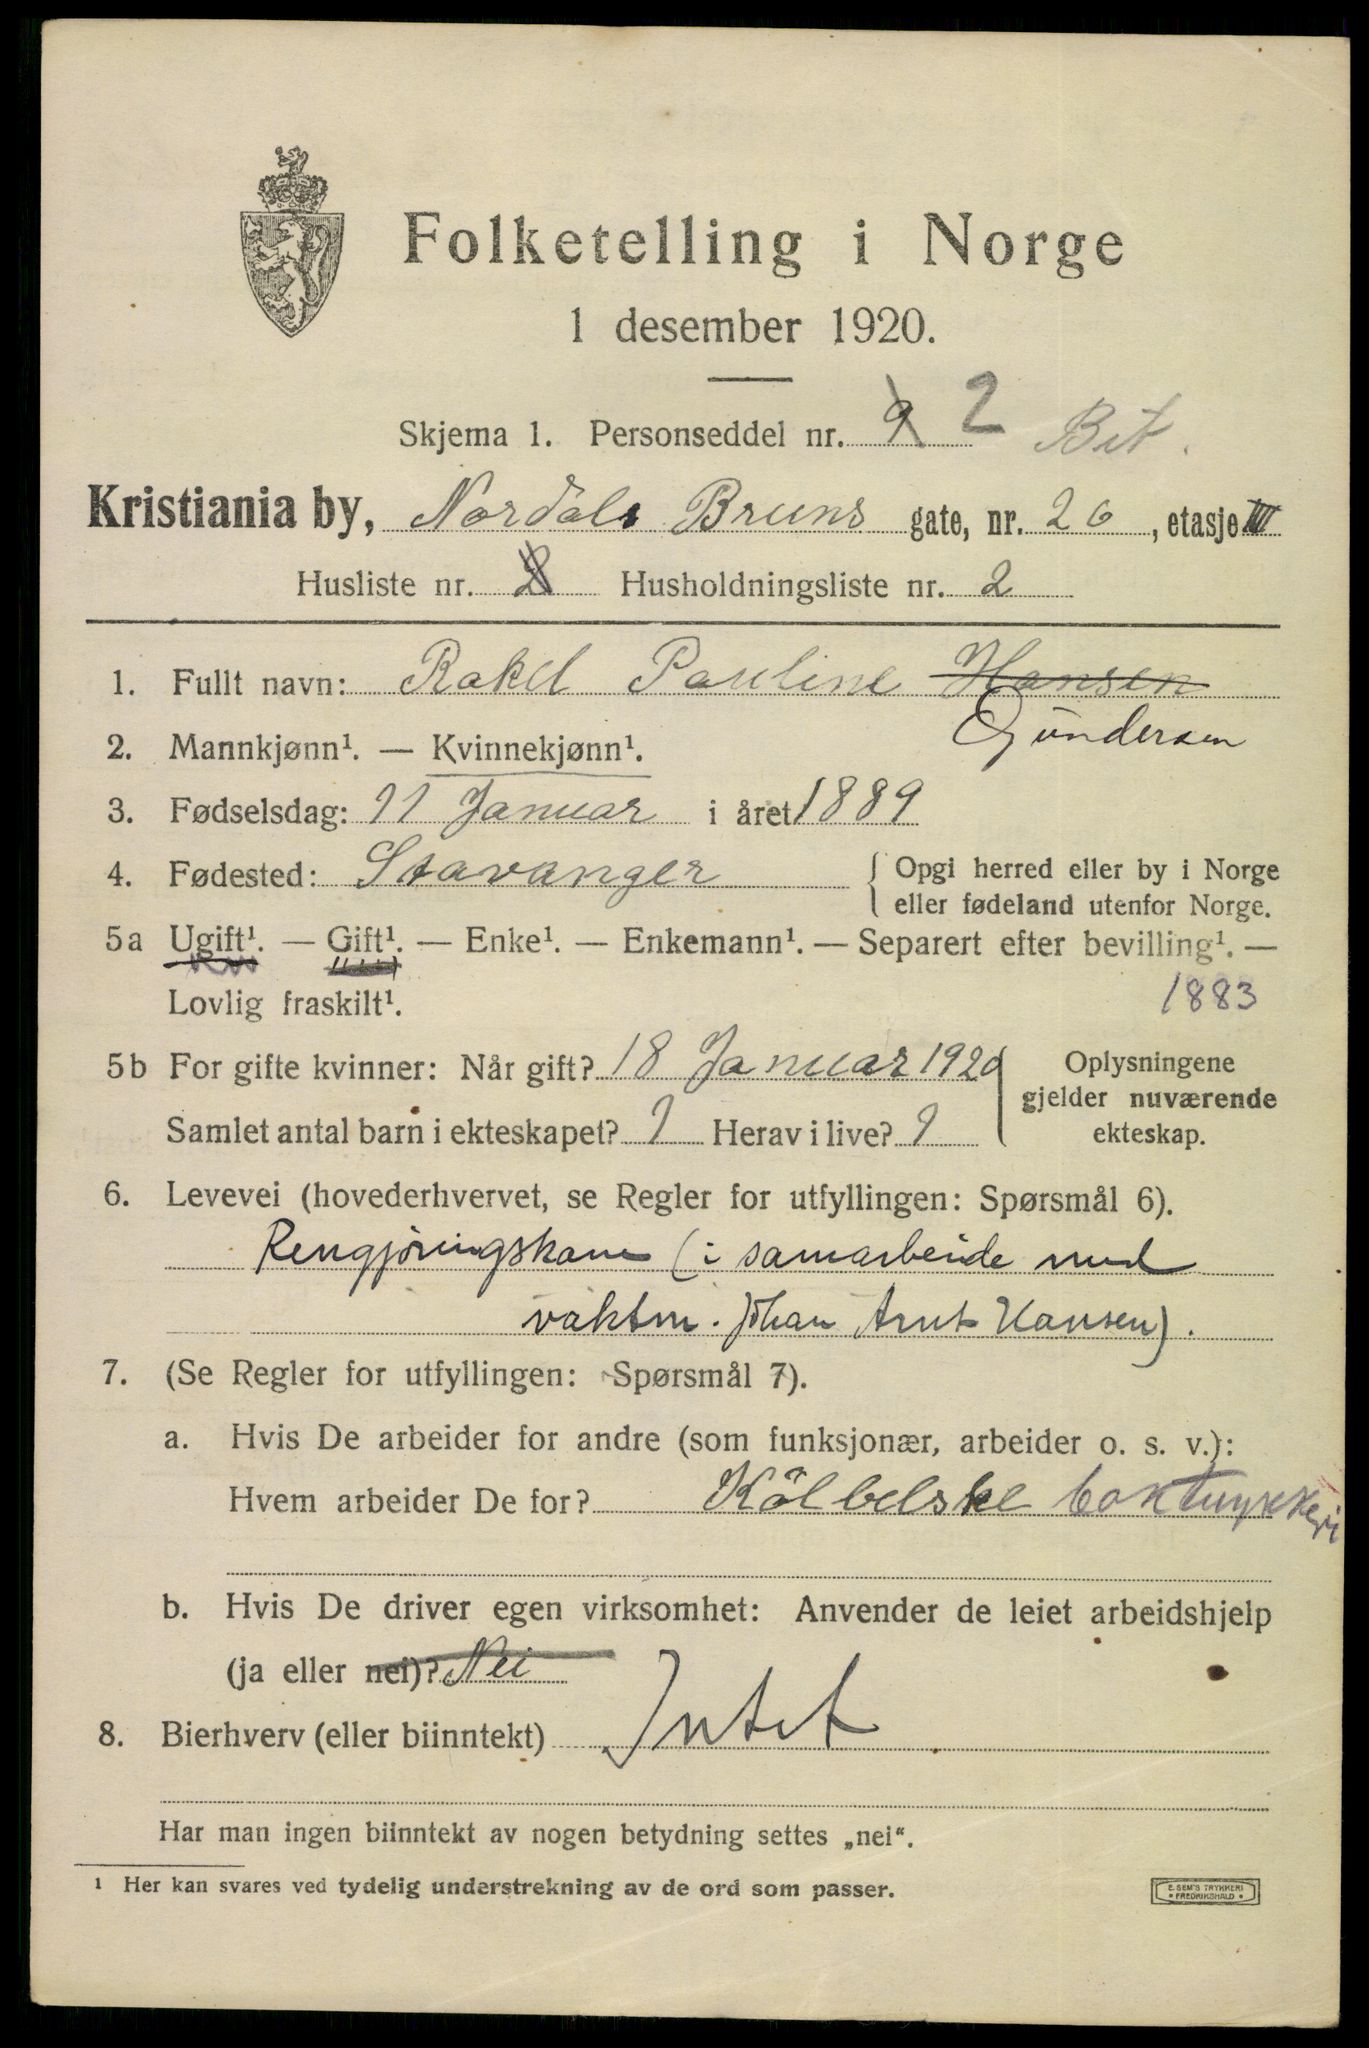 Folketelling i Norge
1 desember 1920.
Skjema 1. Personseddel nr. 9 2 Bet.
Kristiania by, Nordal Bruns gate, nr. 26, etasje III
Husliste nr. 2 Husholdningsliste nr. 2
1. Fullt navn: Rakel Pauline Hansen
Gundersen
2. Mannkjønn¹. — Kvinnekjønn¹.
3. Fødselsdag: 11 Januar i året 1889
4. Fødested: Stavanger { Opgi herred eller by i Norge
eller fødeland utenfor Norge.
5a Ugift¹. — Gift¹. — Enke¹. — Enkemann¹. — Separert efter bevilling¹. —
Lovlig fraskilt¹. 1883
5b For gifte kvinner: Når gift? 18 Januar 1920
Samlet antal barn i ekteskapet? 1 Herav i live? 1
Oplysningene
gjelder nuværende
ekteskap.
6. Levevei (hovederhvervet, se Regler for utfyllingen: Spørsmål 6).
Rengjøringskone (i samarbeide med
vaktm. Johan Arnt Hansen).
7. (Se Regler for utfyllingen: Spørsmål 7).
a. Hvis De arbeider for andre (som funksjonær, arbeider o. s. v.):
Hvem arbeider De for? Kölbelske boktrykkeri
b. Hvis De driver egen virksomhet: Anvender de leiet arbeidshjelp
(ja eller nei)? Nei
8. Bierhverv (eller biinntekt) Intet
Har man ingen biinntekt av nogen betydning settes „nei“.
¹ Her kan svares ved tydelig understrekning av de ord som passer.
E. SEM'S TRYKKERI
• FREDRIKSHALD •